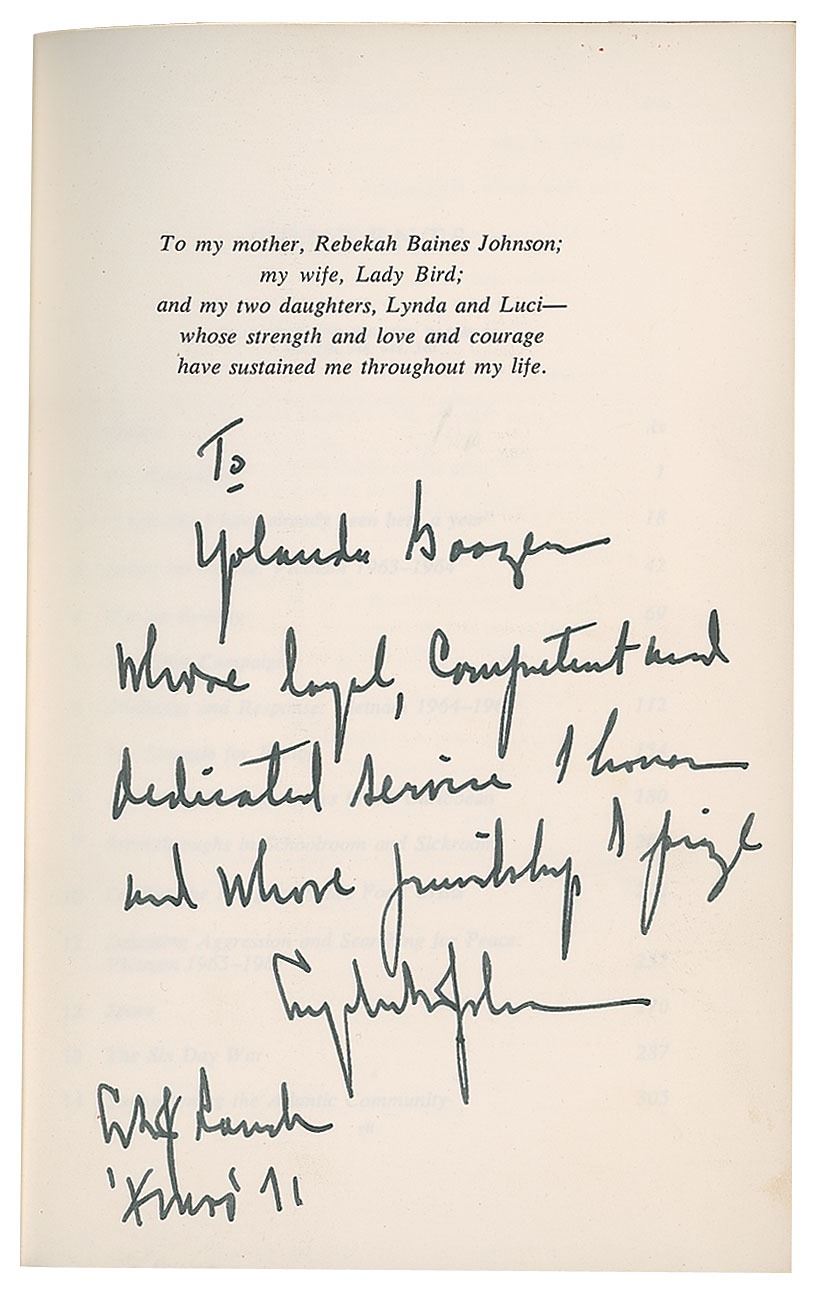 To my mother, Rebekah Baines Johnson;
my wife, Lady Bird;
and my two daughters, Lynda and Luci—
whose strength and love and courage
have sustained me throughout my life.
To
Yolanda Boozer
Whose loyal, Competent and
dedicated service I honor
and whose friendship I prize
Lyndon B Johnson
LBJ Ranch
'Xmas' 71